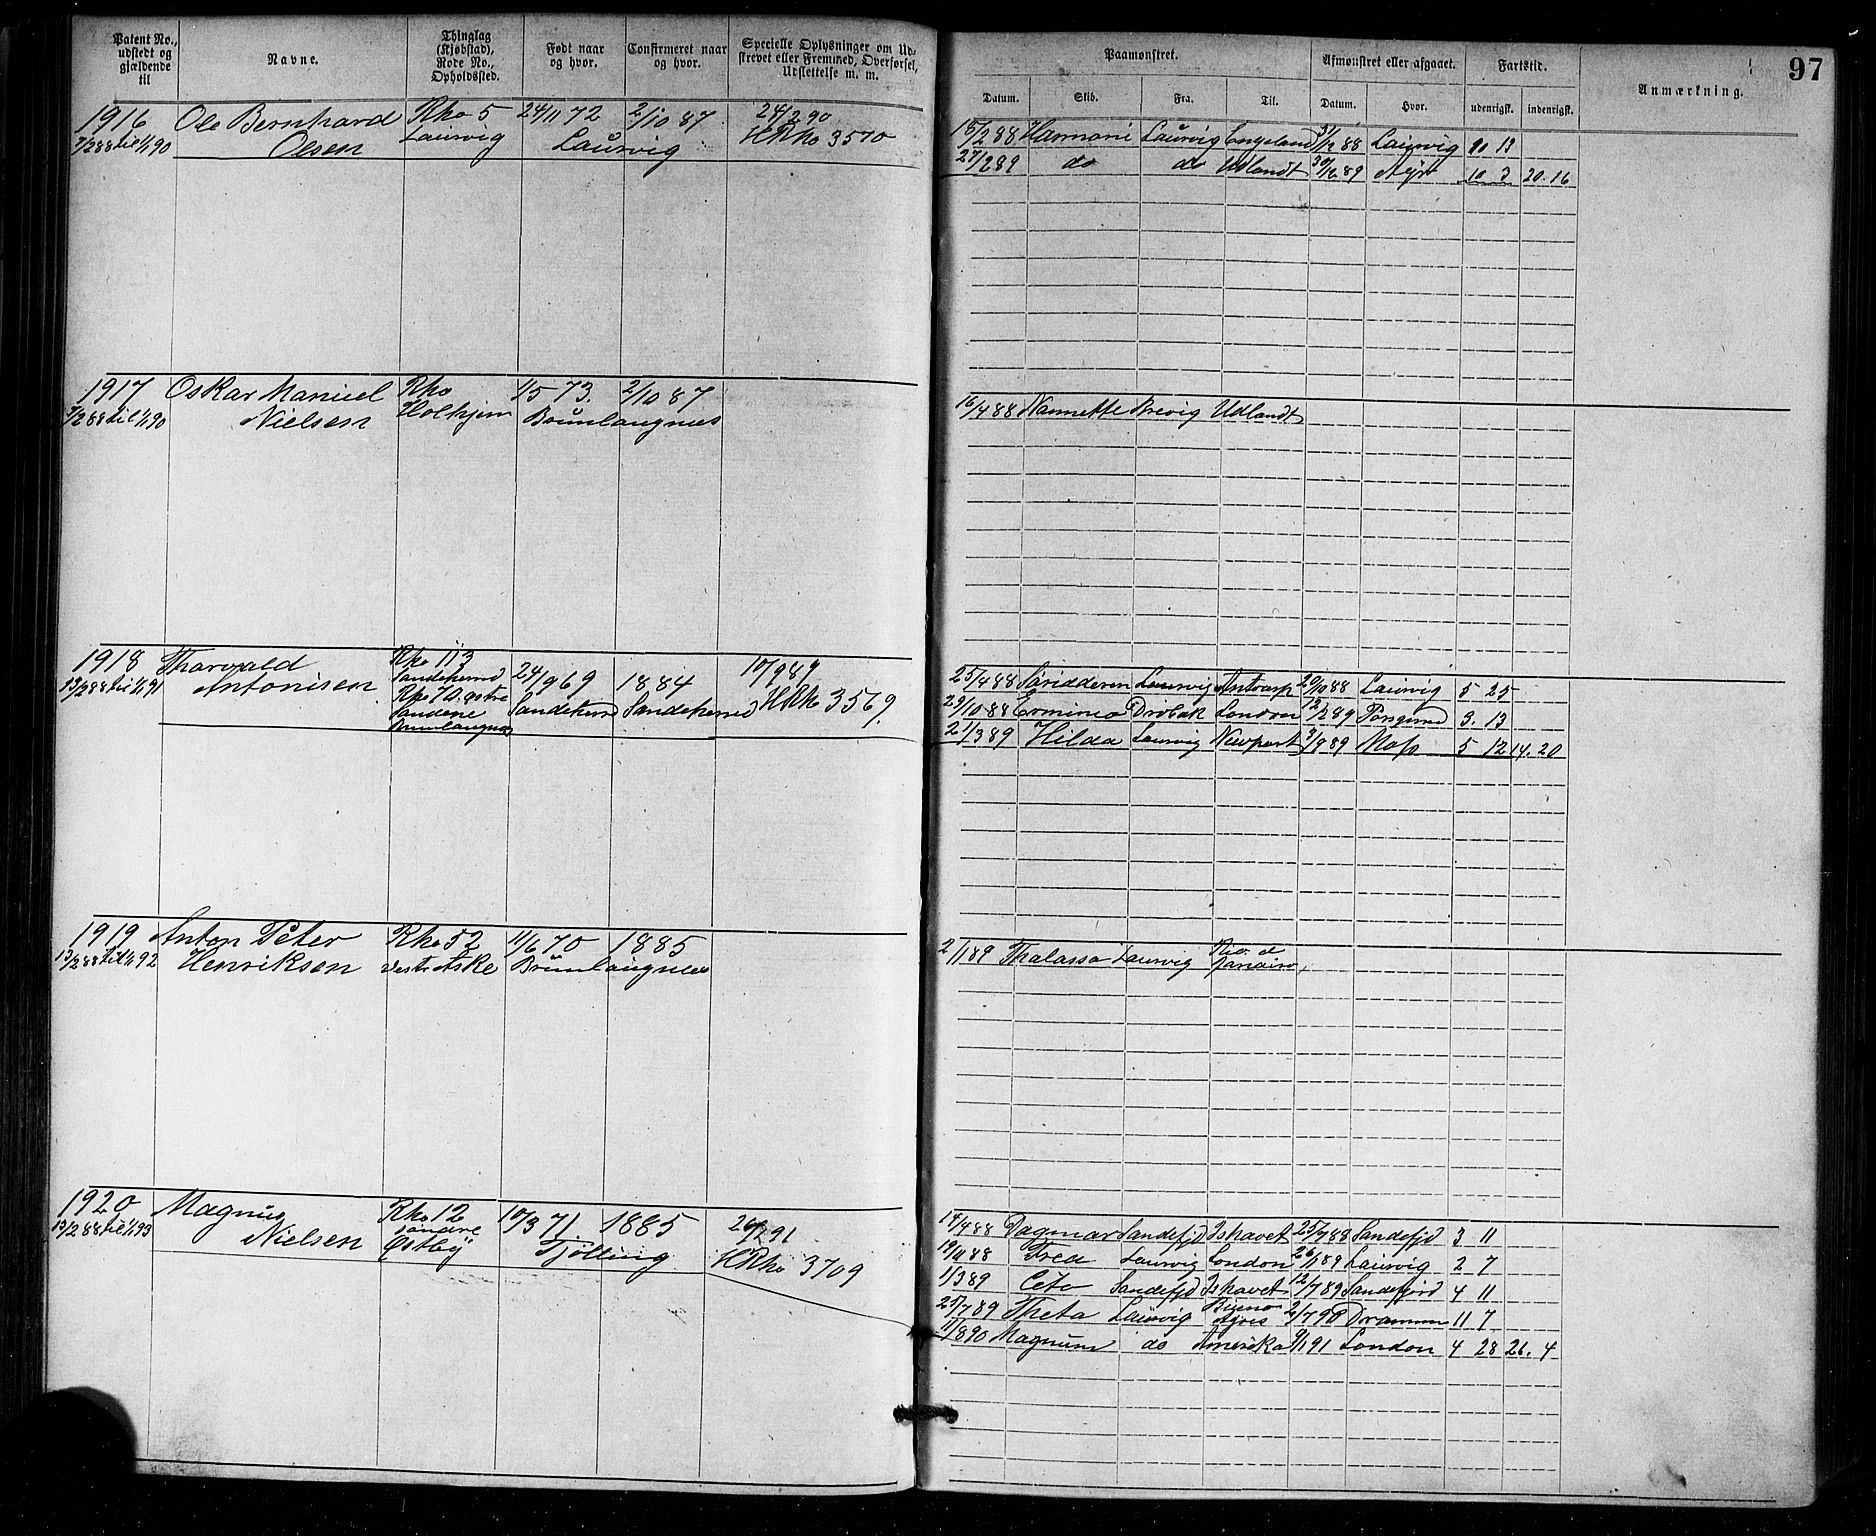 Patent No., udstedt og gjældende til
Navne.
Thinglag (Kjøbstad), Rode No., Opholdssted.
Født naar og hvor.
Confirmeret naar og hvor.
Specielle Oplysninger om Udskrevet eller Fremmed, Overførsel, Udslettelse m. m.
Paamønstret.
Afmønstret eller afgaaet.
Fartstid.
Anmærkning.
97
Datum. Skib. Fra. Til. Datum. Hvor. udenrigsk. indenrigsk.
1916 Ole Bernhard Rho 5 24/11 72 2/10 87 24/2 90
7/2 88 til 1/1 90 Olsen Laurvig Laurvig HRho 3570
15/2 88 Harmoni Laurvig Engeland 31/12 88 Laurvig 10 13
27/2 89 do do Udlandt 30/12 89 10 3 20. 16
1917 Oskar Manuel Rho 1/5 73. 2/10 87
7/2 88 til 1/1 90 Nielsen Holhjem Brunlangnæs
16/4 88 Nannette Brevig Udlandt
1918 Thorvald Rho 113 24/9 69 1884 10/9 89
13/2 88 til 1/1 91 Antonisen Sandeherred Sandeherred Sandeherred HRho 3569.
Rho 70 østre
Sandene
Brunlangnæs
25/4 88 Laurvig Antverp 20/10 88 Laurvig 5 25
29/10 88 Erminea Drøbak London 12/2 89 Porsgrund 3. 13
21/3 89 Hilda Laurvig Newport 3/9 89 Moss 5 12 14. 20
1919 Anton Peter Rho 52 11/6 70 1885
13/2 88 til 1/1 92 Henriksen Vestre Aske Brunlangnæs
2/1 89 Thalassa Laurvig Rio d Janairo,
1920 Magnus Rho 12 10/3 71 1885 26/2 91
13/2 88 til 1/1 93 Nielsen søndre Østby Tjølling HRho 3709
14/4 88 Dagmar Sandefjd Ishavet 25/7 88 Sandefjd 3 11
19/11 88 Fred Laurvig London 26/1 89 Laurvig 2 7
1/3 89 Cete Sandefjd Ishavet 12/7 89 Sandefjord 4 11
25/7 89 Theta Laurvig Buenos Ayres 2/7 90 Drammen 11 7
11/8 90 Magnum do Amerika 9/1 91 London 4 28 26. 4